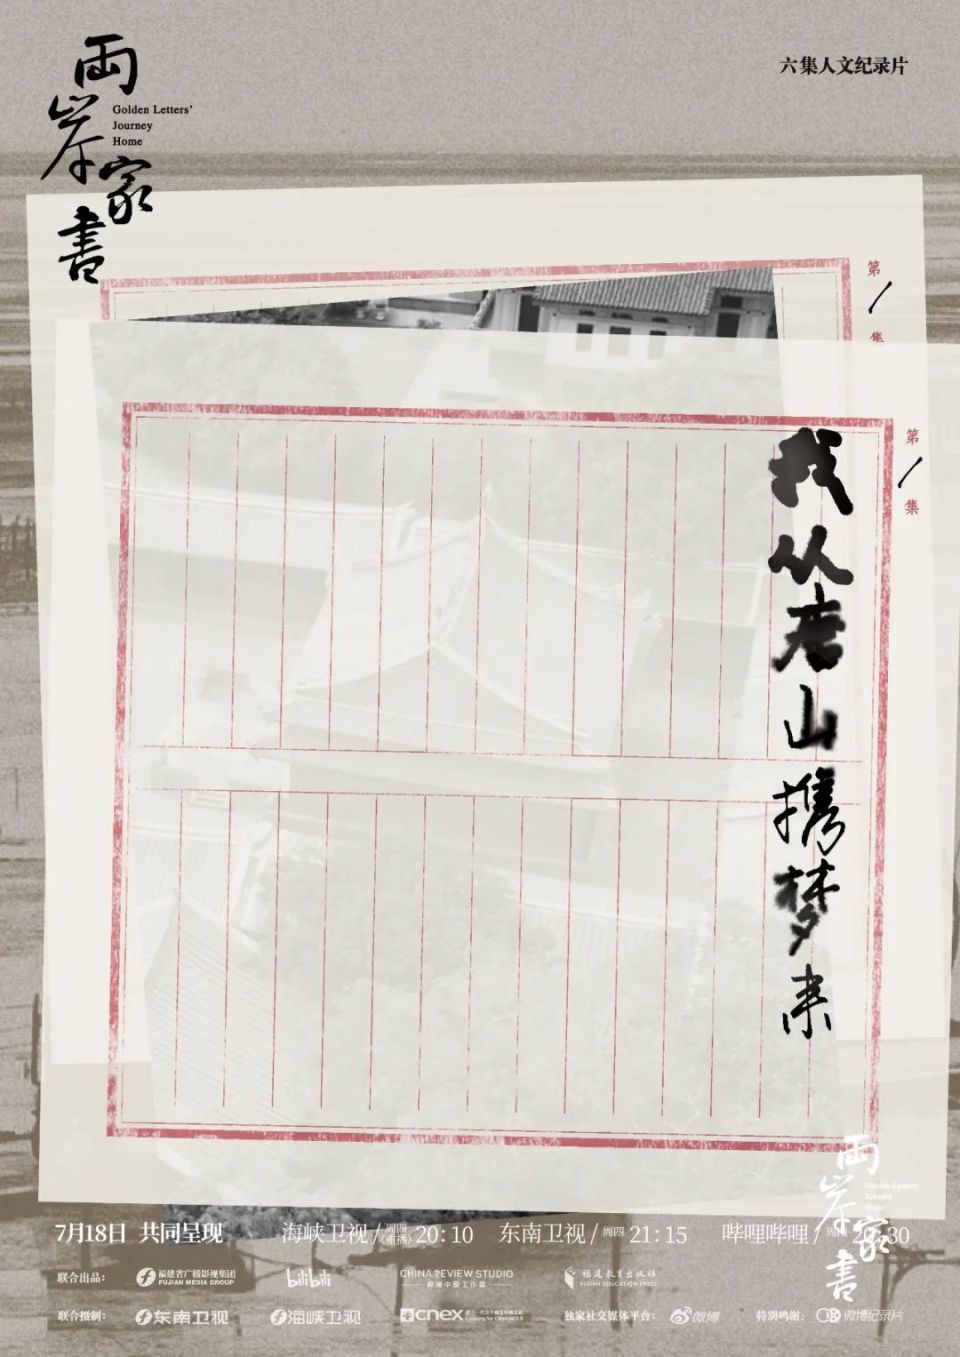 兩岸家書
Golden Letters'
Journey
Home
六集人文纪录片
第
1
集
第
1
集
我从唐山携梦来
兩岸家書
Golden Letters'
Journey
Home
7月18日 共同呈现
海峡卫视/周四(首播)20:10 东南卫视/周四21:15 哔哩哔哩/
联合出品: 福建省广播影视集团 FUJIAN MEDIA GROUP bilibili CHINA REVIEW STUDIO 解读中国工作室 福建教育出版社 FUJIAN EDUCATION PRESS
联合摄制: 东南卫视 海峡卫视 cnex 独家社交媒体平台: 微博 特别鸣谢: 微博纪录片